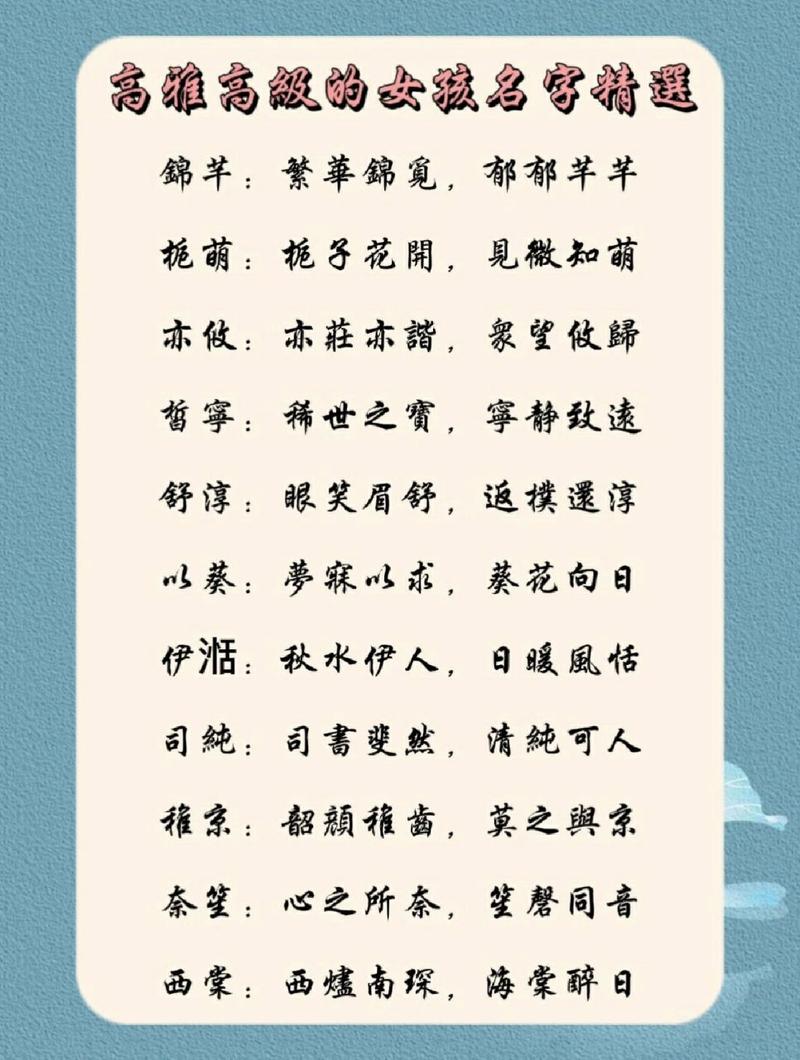 高雅高級的女孩名字精選
錦芊：繁華錦覓，郁郁芊芊
栀萌：栀子花開，見微知萌
亦攸：亦莊亦諧，衆望攸歸
皙寧：稀世之寶，寧静致遠
舒淳：眼笑眉舒，返樸還淳
以葵：夢寐以求，葵花向日
伊湉：秋水伊人，日暖風恬
司純：司書斐然，清純可人
稚京：韶顔稚齒，莫之與京
奈笙：心之所奈，笙磬同音
西棠：西燼南琛，海棠醉日